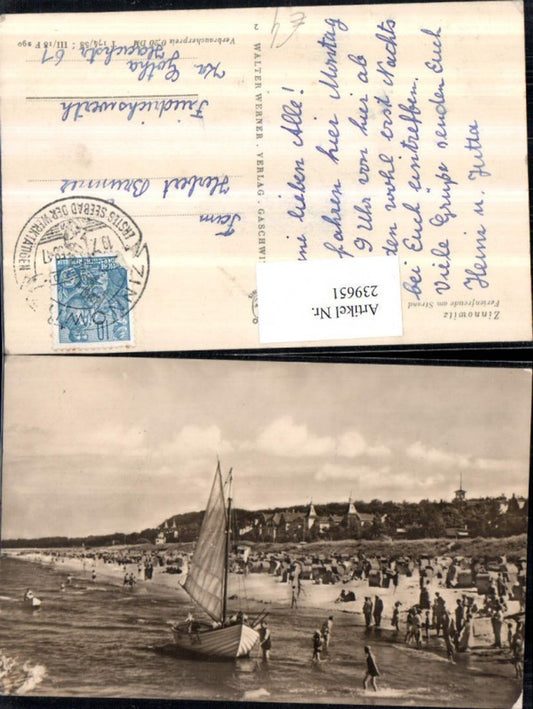 Meine lieben Alle!
fahren hier Montag
9 Uhr von hier ab
den wohl erst Nachts
bei Euch eintreffen.
Viele Grüße senden Euch
Heini u. Jutta
Fam
Herbert Brummer
Friedrichswerth
Kr. Gotha
67
Artikel Nr.
239651
Zinnowitz
Ferienfreude am Strand
WALTER WERNER · VERLAG · GASCHWI
2
Verbraucherpreis 0,20 DM
T 174/58 · III/18 F 290
ZINNOWITZ
ERSTES SEEBAD DER WERKTÄTIGEN
£4